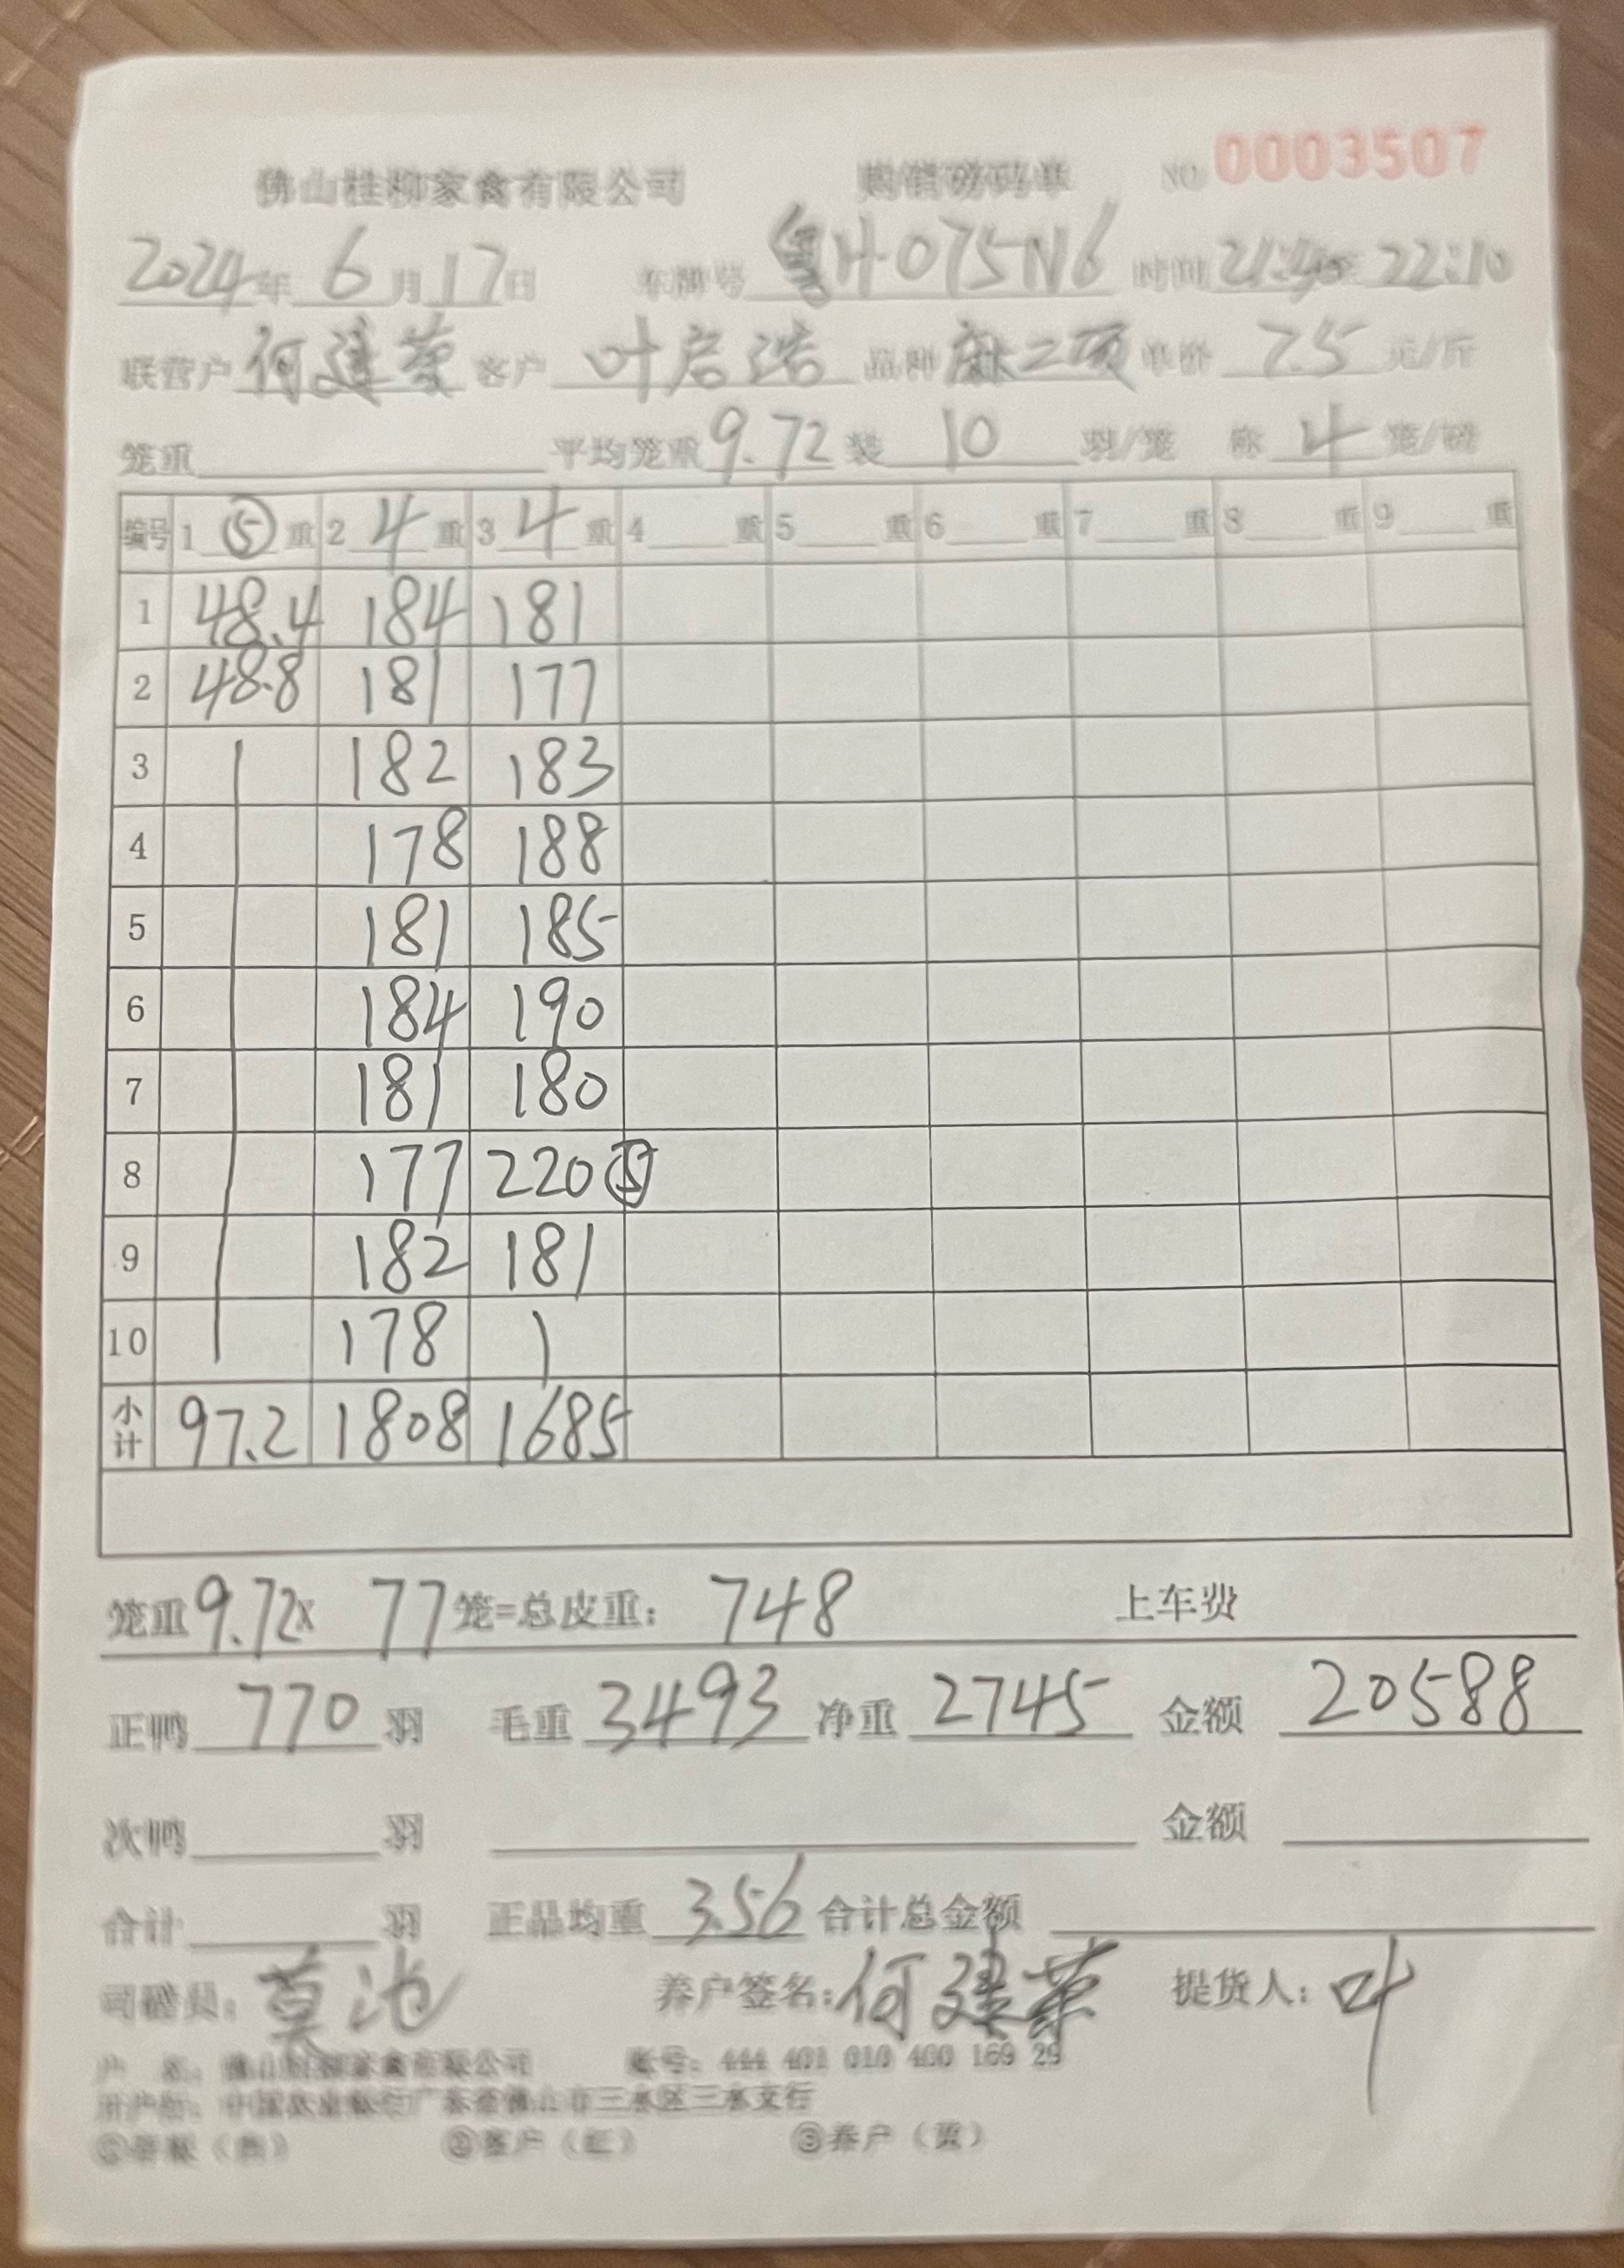 佛山桂柳家禽有限公司 购销磅码单 NO 0003507
2024年6月17日 车牌号 粤H·075N6 时间 21:40 22:10
联营户 何建荣 客户 叶启浩 品种 麻二项 单价 7.5 元/斤
笼重 平均笼重 9.72 装 10 羽/笼 称 4 笼/磅
编号 1 ⑤ 重 2 4 重 3 4 重 4 重 5 重 6 重 7 重 8 重 9 重
1 48.4 184 181
2 48.8 181 177
3 182 183
4 178 188
5 181 185
6 184 190
7 181 180
8 177 220 ⑤
9 182 181
10 178
小计 97.2 1808 1685
笼重 9.72 X 77 笼=总皮重: 748 上车费
正鸭 770 羽 毛重 3493 净重 2745 金额 20588
次鸭 羽 金额
合计 羽 正品均重 3.56 合计总金额
司磅员: 莫池 养户签名: 何建荣 提货人: 叶
户 名: 佛山桂柳家禽有限公司 账号: 444 401 010 400 169 29
开户行: 中国农业银行广东省佛山市三水区三水支行
①存根(白) ②客户(红) ③养户(黄)